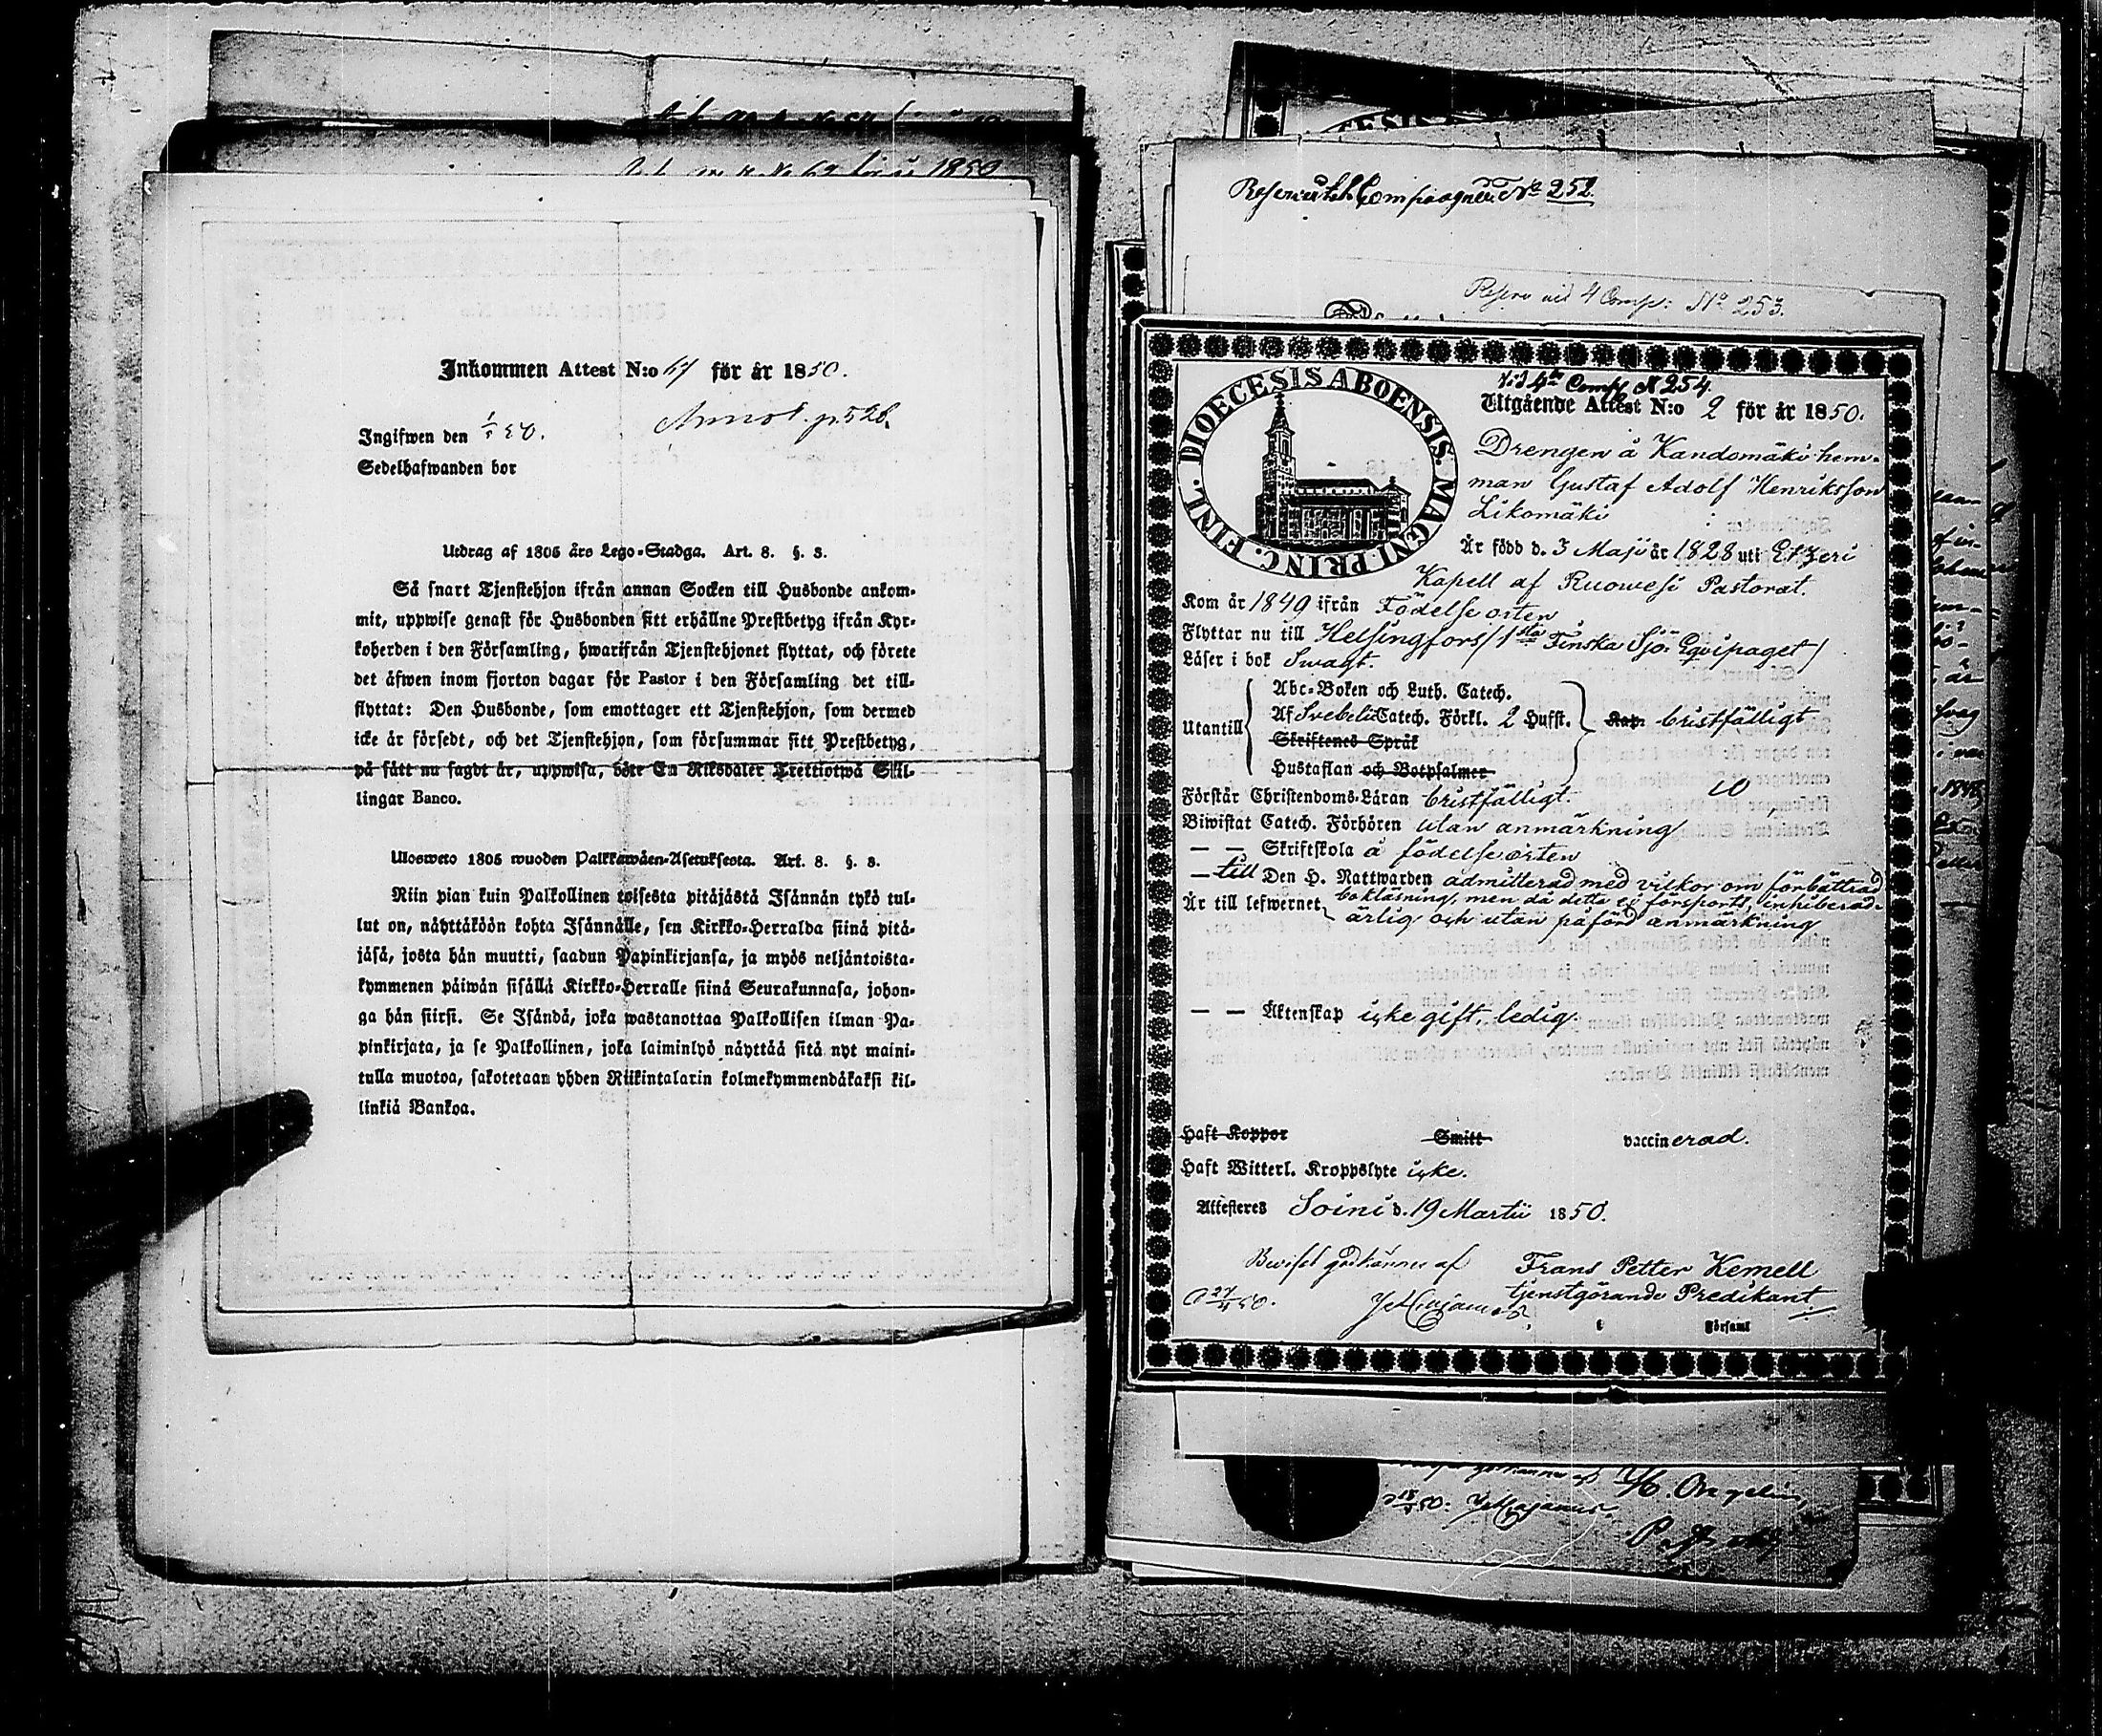 1850
Inkommen Attest N:o 67 för år 1850.
Annot. p. 528.
Ingifwen den 1/5 50.
Sedelhafwanden bor
Utdrag af 1805 års Lego-Stadga. Art. 8. §. 3.
Så snart Tjenstehjon ifrån annan Socken till Husbonde ankom-
mit, uppwise genast för Husbonden sitt erhållne Prestbetyg ifrån Kyr-
koherden i den Församling, hwarifrån Tjenstehjonet flyttat, och förete
det äfwen inom fjorton dagar för Pastor i den Församling det till-
flyttat: Den Husbonde, som emottager ett Tjenstehjon, som dermed
icke är försedt, och det Tjenstehjon, som försummar sitt Prestbetyg,
på sätt nu sagdt är, uppwisa, böte En Riksdaler Trettiotwå Skil-
lingar Banco.
Ulosweto 1805 wuoden Palkkawäen-Asetuksesta. Art. 8. §. 3.
Niin pian kuin Palkollinen toisesta pitäjästä Isännän tykö tul-
lut on, näyttäköön kohta Isännälle, sen Kirkko-Herralda siinä pitä-
jäsä, josta hän muutti, saadun Papinkirjansa, ja myös neljäntoista-
kymmenen päiwän sisällä Kirkko-Herralle siinä Seurakunnasa, johon-
ga hän siirsi. Se Isändä, joka wastanottaa Palkollisen ilman Pa-
pinkirjata, ja se Palkollinen, joka laiminlyö näyttää sitä nyt maini-
tulla muotoa, sakotetaan yhden Riikintalarin kolmekymmendäkaksi kil-
linkiä Bankoa.
Compagniet No 252.
Reserv vid 4 Comp: No 253.
Vid 4de Comp N 254.
Utgående Attest N:o 2 för år 1850.
DIOECESIS ABOENSIS. MAGNI PRINC. FINL.
Drengen å Kandomäki hem-
man Gustaf Adolf Henriksson
Likomäki
Är född d. 3 Maji år 1828 uti Etzeri
Kapell af Ruowesi Pastorat.
Kom år 1849 ifrån Födelseorten
Flyttar nu till Helsingfors (1sta Finska Sjö Equipaget)
Läser i bok Swagt.
Utantill
Abc-Boken och Luth. Catech.
Af Svebelii Catech. Förkl. 2 Hufst. Kap. bristfälligt
Skriftenes Språk
Hustaflan och Botpsalmer
Förstår Christendoms-Läran bristfälligt.
Biwistat Catech. Förhören utan anmärkning
— — Skriftskola å födelseorten
— till Den H. Nattwarden admitterad med vilkor om förbättrad
bokläsning, men då detta ej försports, inhiberad.
Är till lefwernet ärlig och utan påförd anmärkning
— — Äktenskap icke gift, ledig.
Haft Koppor Smitt vaccinerad.
Haft Witterl. Kroppslyte icke.
Attesteres Soini d. 19 Martii 1850.
Beviset godkännes af
Frans Petter Kemell
tjenstgörande Predikant
27/4 50.
i Församl